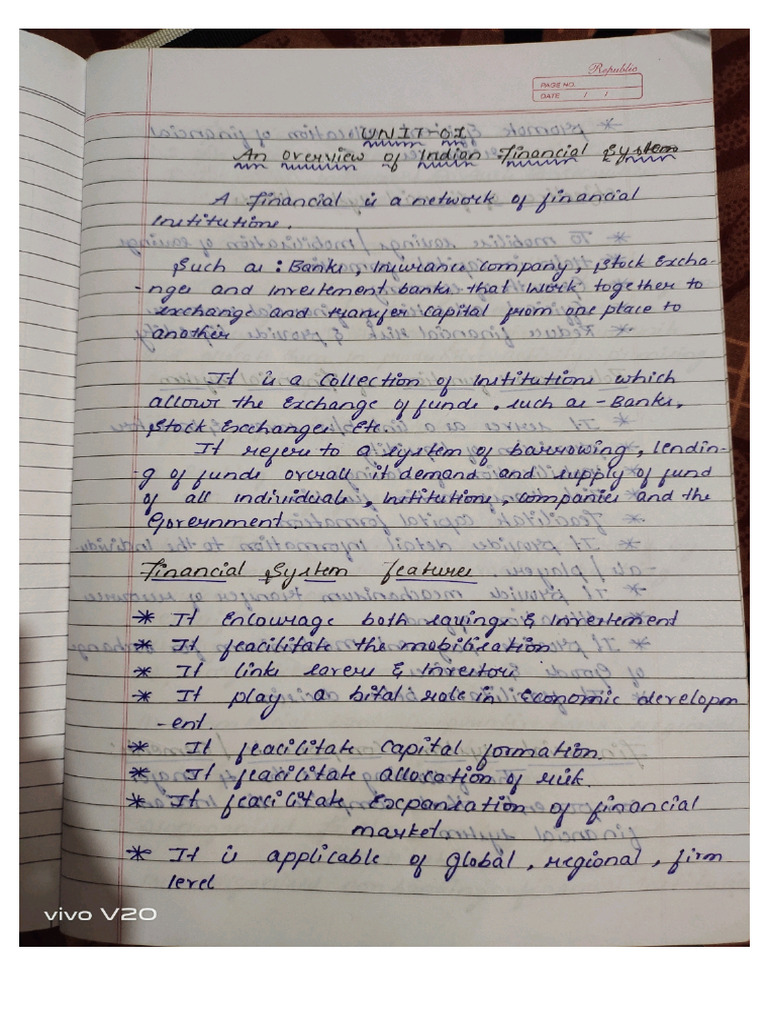 Republic
PAGE NO.
DATE / /
UNIT-01
An overview of Indian Financial System
A Financial is a network of financial
institutions.
Such as : Banks, Insurance company, Stock Excha-
-nges and Investement banks that work together to
exchange and transfer capital from one place to
another
It is a Collection of institutions which
allows the Exchange of funds. such as - Banks,
Stock Exchanges Etc.
It refers to a system of barrowing, lendin-
-g of funds overall it demand and supply of fund
of all individuals, institutions, companies and the
Government.
Financial System features.
* It Encourage both savings & Investement
* It feacilitate the mobilisation
* It links savers & Investors
* It play a bital role in Economic developm
-ent.
* It feacilitate Capital formation.
* It feacilitate allocation of risk.
* It feacilitate Expansation of financial
market
* It is applicable of global, regional, firm
level
vivo V20